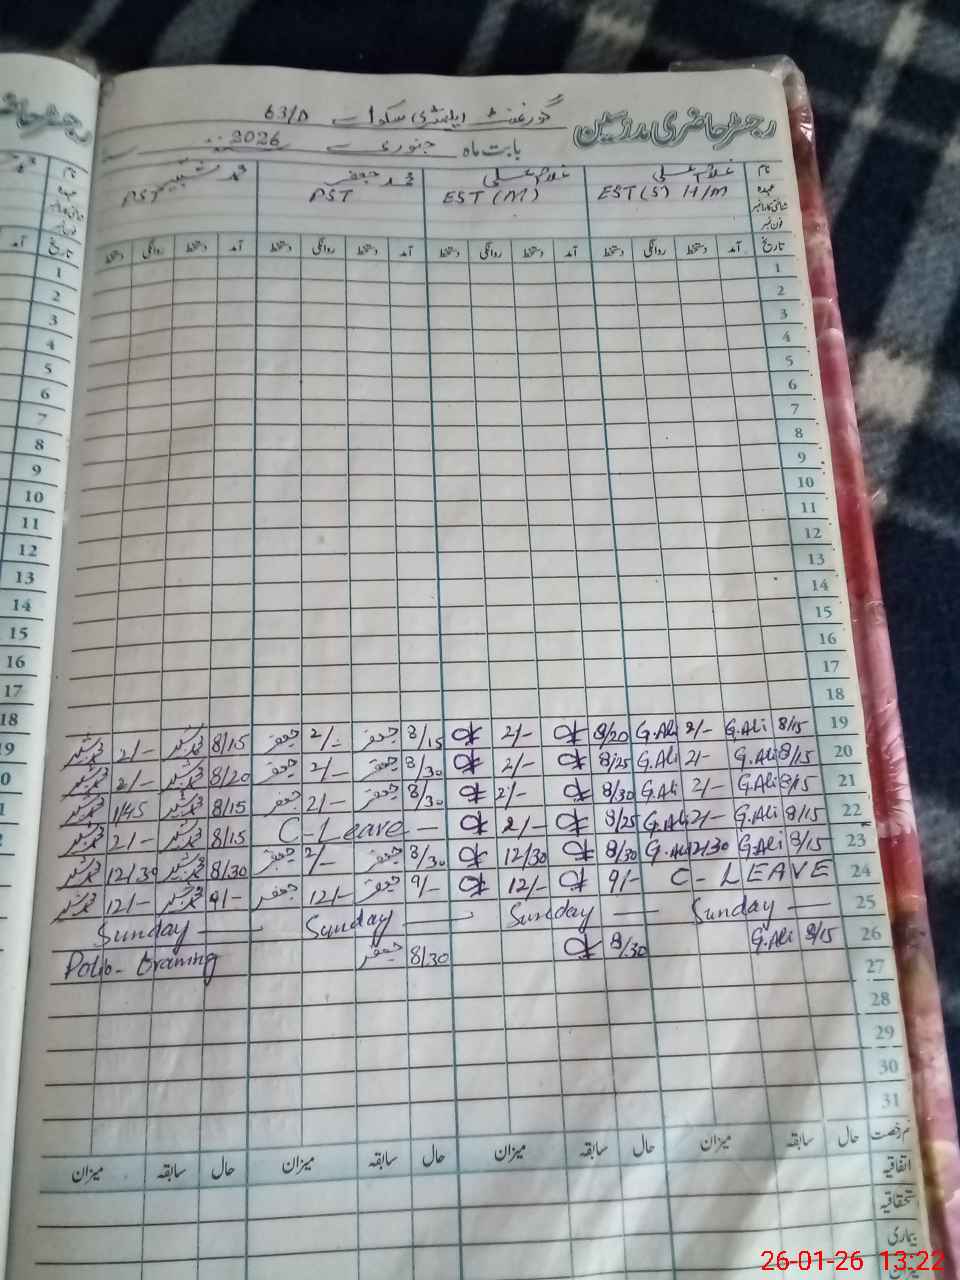 رجسٹر حاضری مدرسین گورنمنٹ ایلیمنٹری سکول 63/D
بابت ماہ جنوری 2026
نام غلام علی غلام علی محمد جعفر محمد شبیر
عہدہ EST (S) H/M EST (M) PST PST
شناختی کارڈ نمبر
فون نمبر
تاریخ آمد دستخط روانگی دستخط آمد دستخط روانگی دستخط آمد دستخط روانگی دستخط آمد دستخط روانگی دستخط
1
2
3
4
5
6
7
8
9
10
11
12
13
14
15
16
17
18
19 8/15 G.Ali 2/- G.Ali 8/20 2/- 8/15 جعفر 2/- جعفر 8/15 2/-
20 8/15 G.Ali 2/- G.Ali 8/25 2/- 8/30 جعفر 2/- جعفر 8/20 2/-
21 8/15 G.Ali 2/- G.Ali 8/30 2/- 8/30 جعفر 2/- جعفر 8/15 1/45
22 8/15 G.Ali 2/- G.Ali 8/25 2/- C-Leave - 8/15 2/-
23 8/15 G.Ali 12/30 G.Ali 8/30 12/30 8/30 جعفر 2/- جعفر 8/30 12/30
24 C-LEAVE 9/- 12/- 9/- جعفر 12/- جعفر 9/- 12/-
25 Sunday Sunday Sunday Sunday
26 8/15 G.Ali 8/30 8/30 جعفر Polio-traning
27
28
29
30
31
قسم رخصت حال سابقہ میزان حال سابقہ میزان حال سابقہ میزان حال سابقہ میزان
اتفاقیہ
استحقاقیہ
بیماری
رجسٹر حاضر
آمد تاریخ
1
2
3
4
5
6
7
8
9
10
11
12
13
14
15
16
17
18
26-01-26 13:22